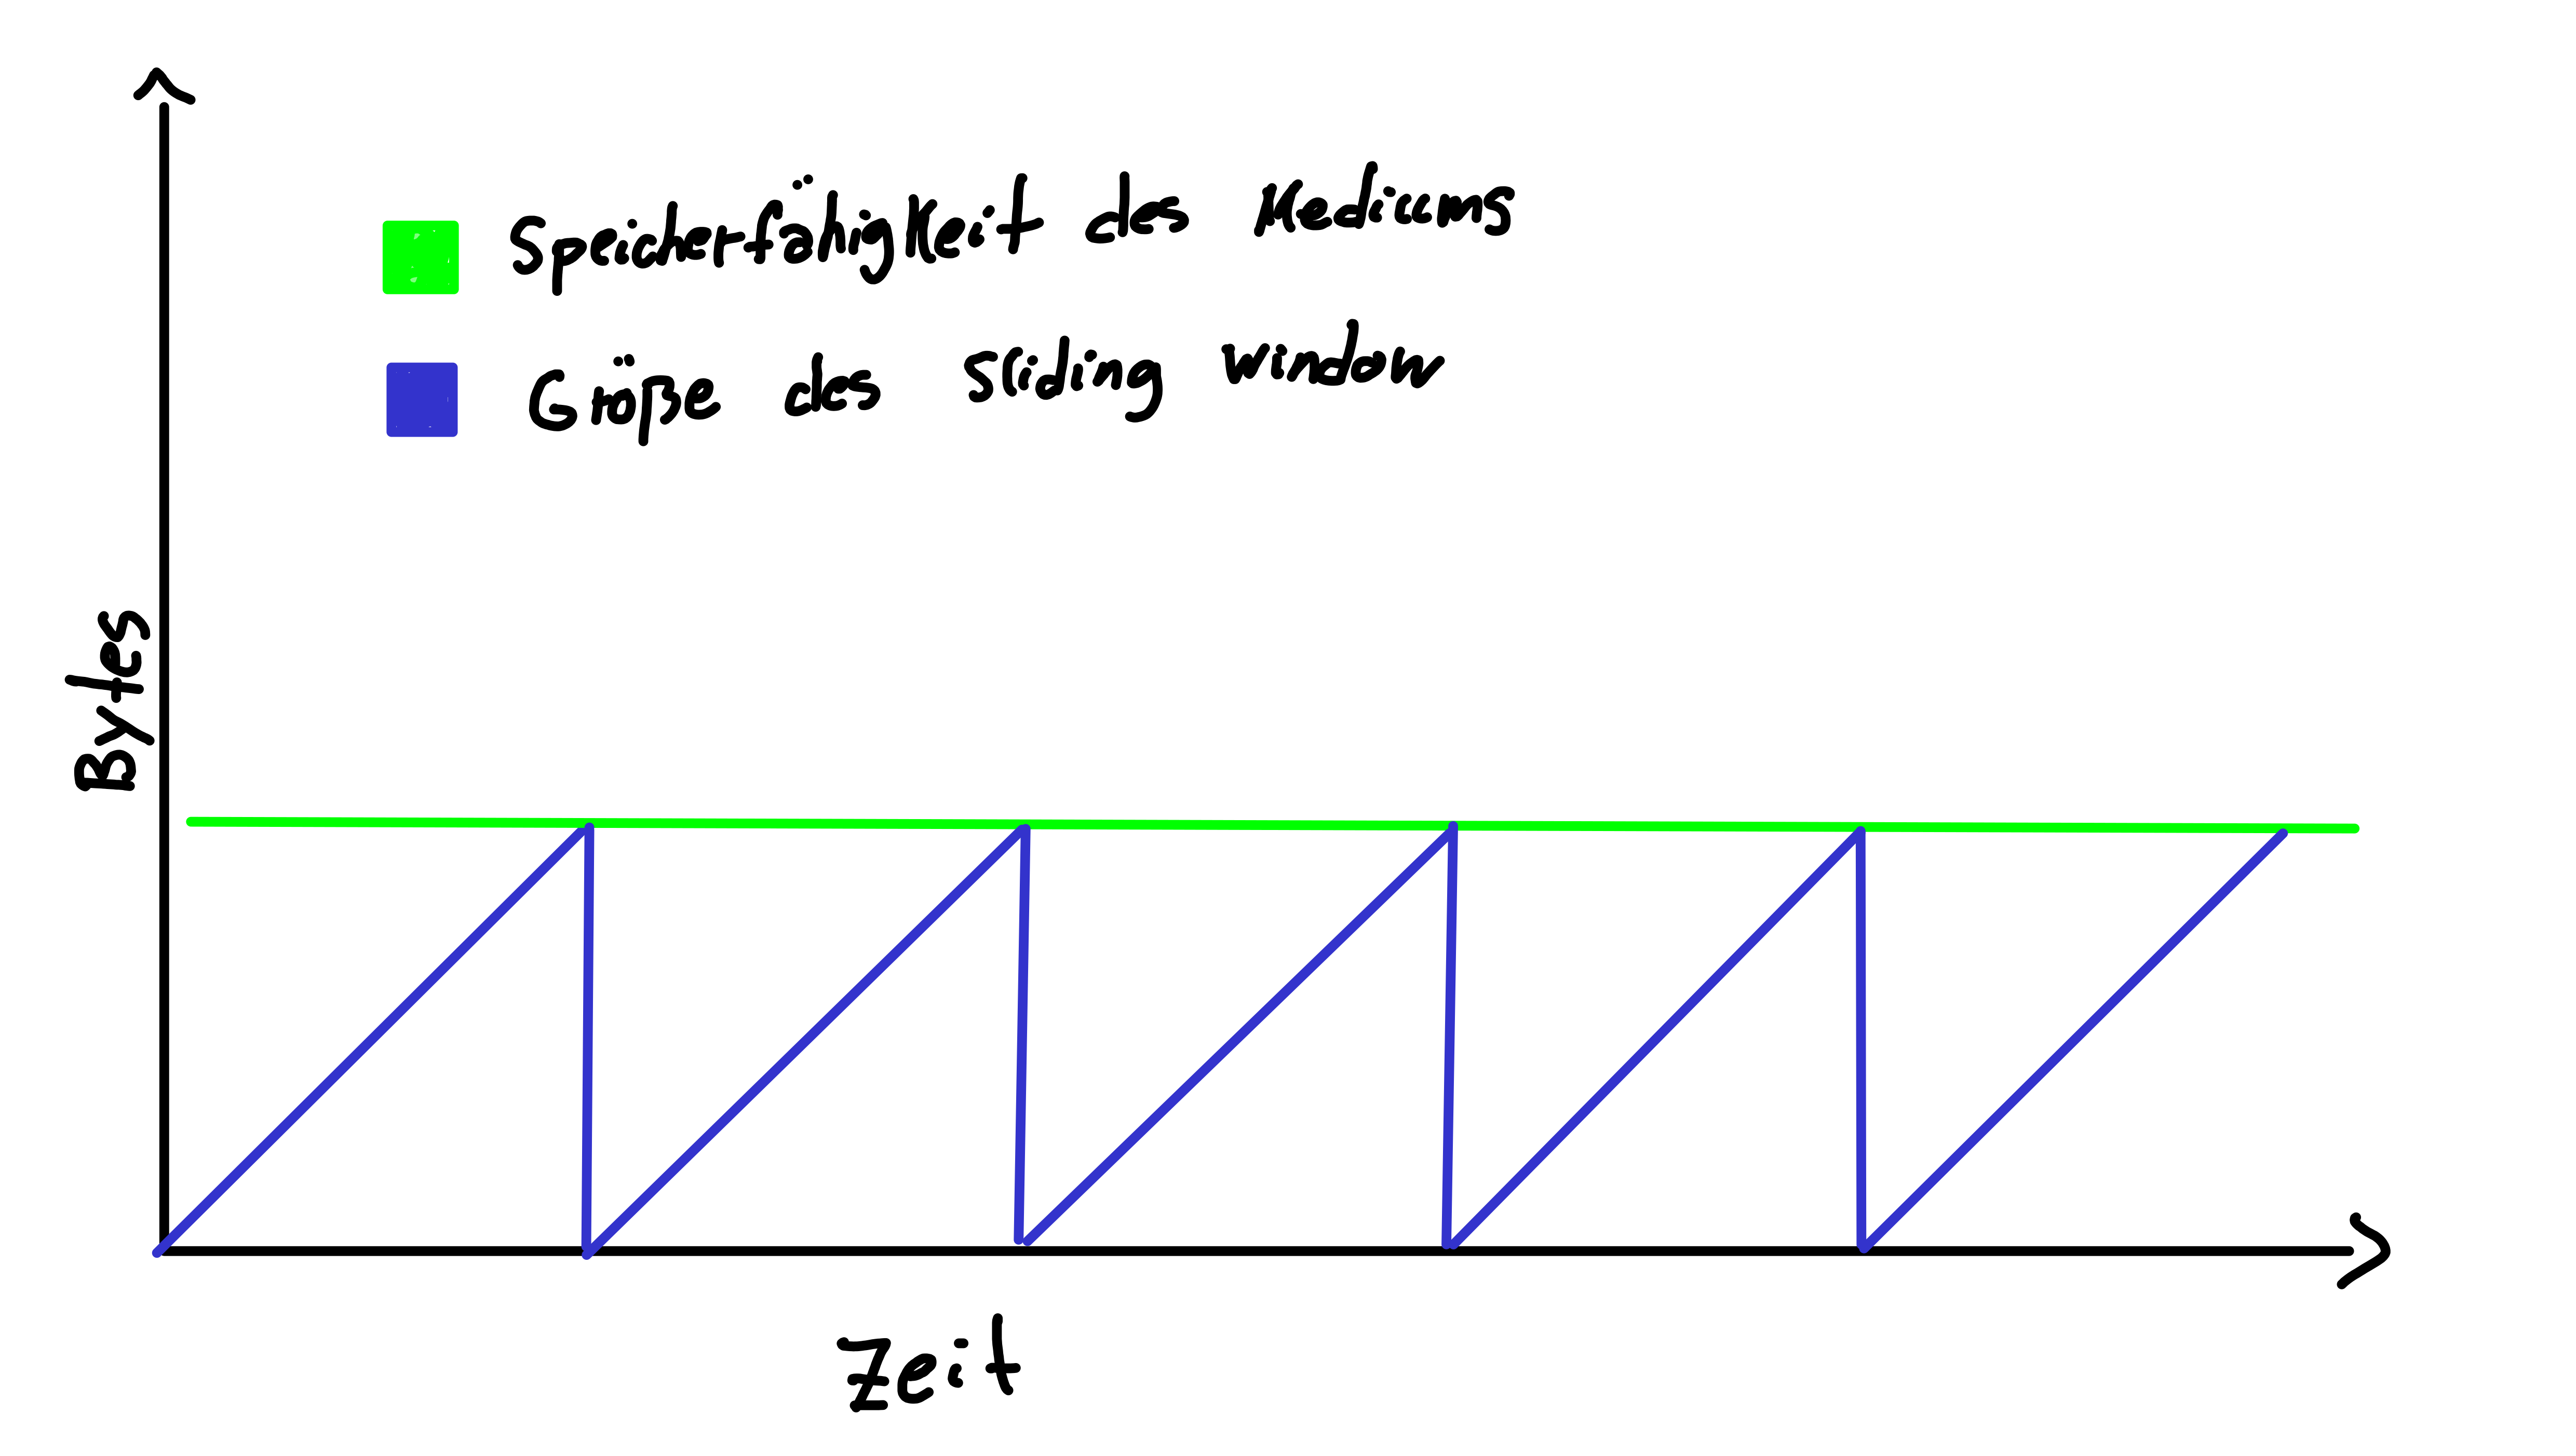 Speicherfähigkeit des Mediums
Größe des Sliding window
Bytes
Zeit